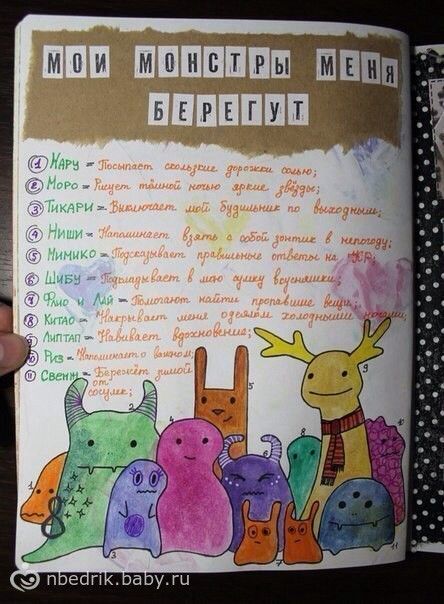 МОИ МОНСТРЫ МЕНЯ
БЕРЕГУТ
1 МАРУ = Посыпает скользкие дорожки солью;
2 МОРО = Рисует тёмной ночью яркие звёзды;
3 ТИКАРИ = Выключает мой будильник по выходным;
4 НИШИ = Напоминает взять с собой зонтик в непогоду;
5 МИМИКО = Подсказывает правильные ответы на
6 ШИБУ = Подкладывает в мою сумку вкусняшки;
7 ФИО И ЛАЙ = Помогают найти пропавшие вещи;
8 КИТАО = Накрывает меня одеялом холодными ночами;
9 ЛИПТАП = Навивает вдохновение;
10 РИЗ = Напоминает о важном;
11 СВЕНЖ = Бережёт зимой
от
сосулек;
1
2
3
4
5
6
7
8
9
10
11
nbedrik.baby.ru